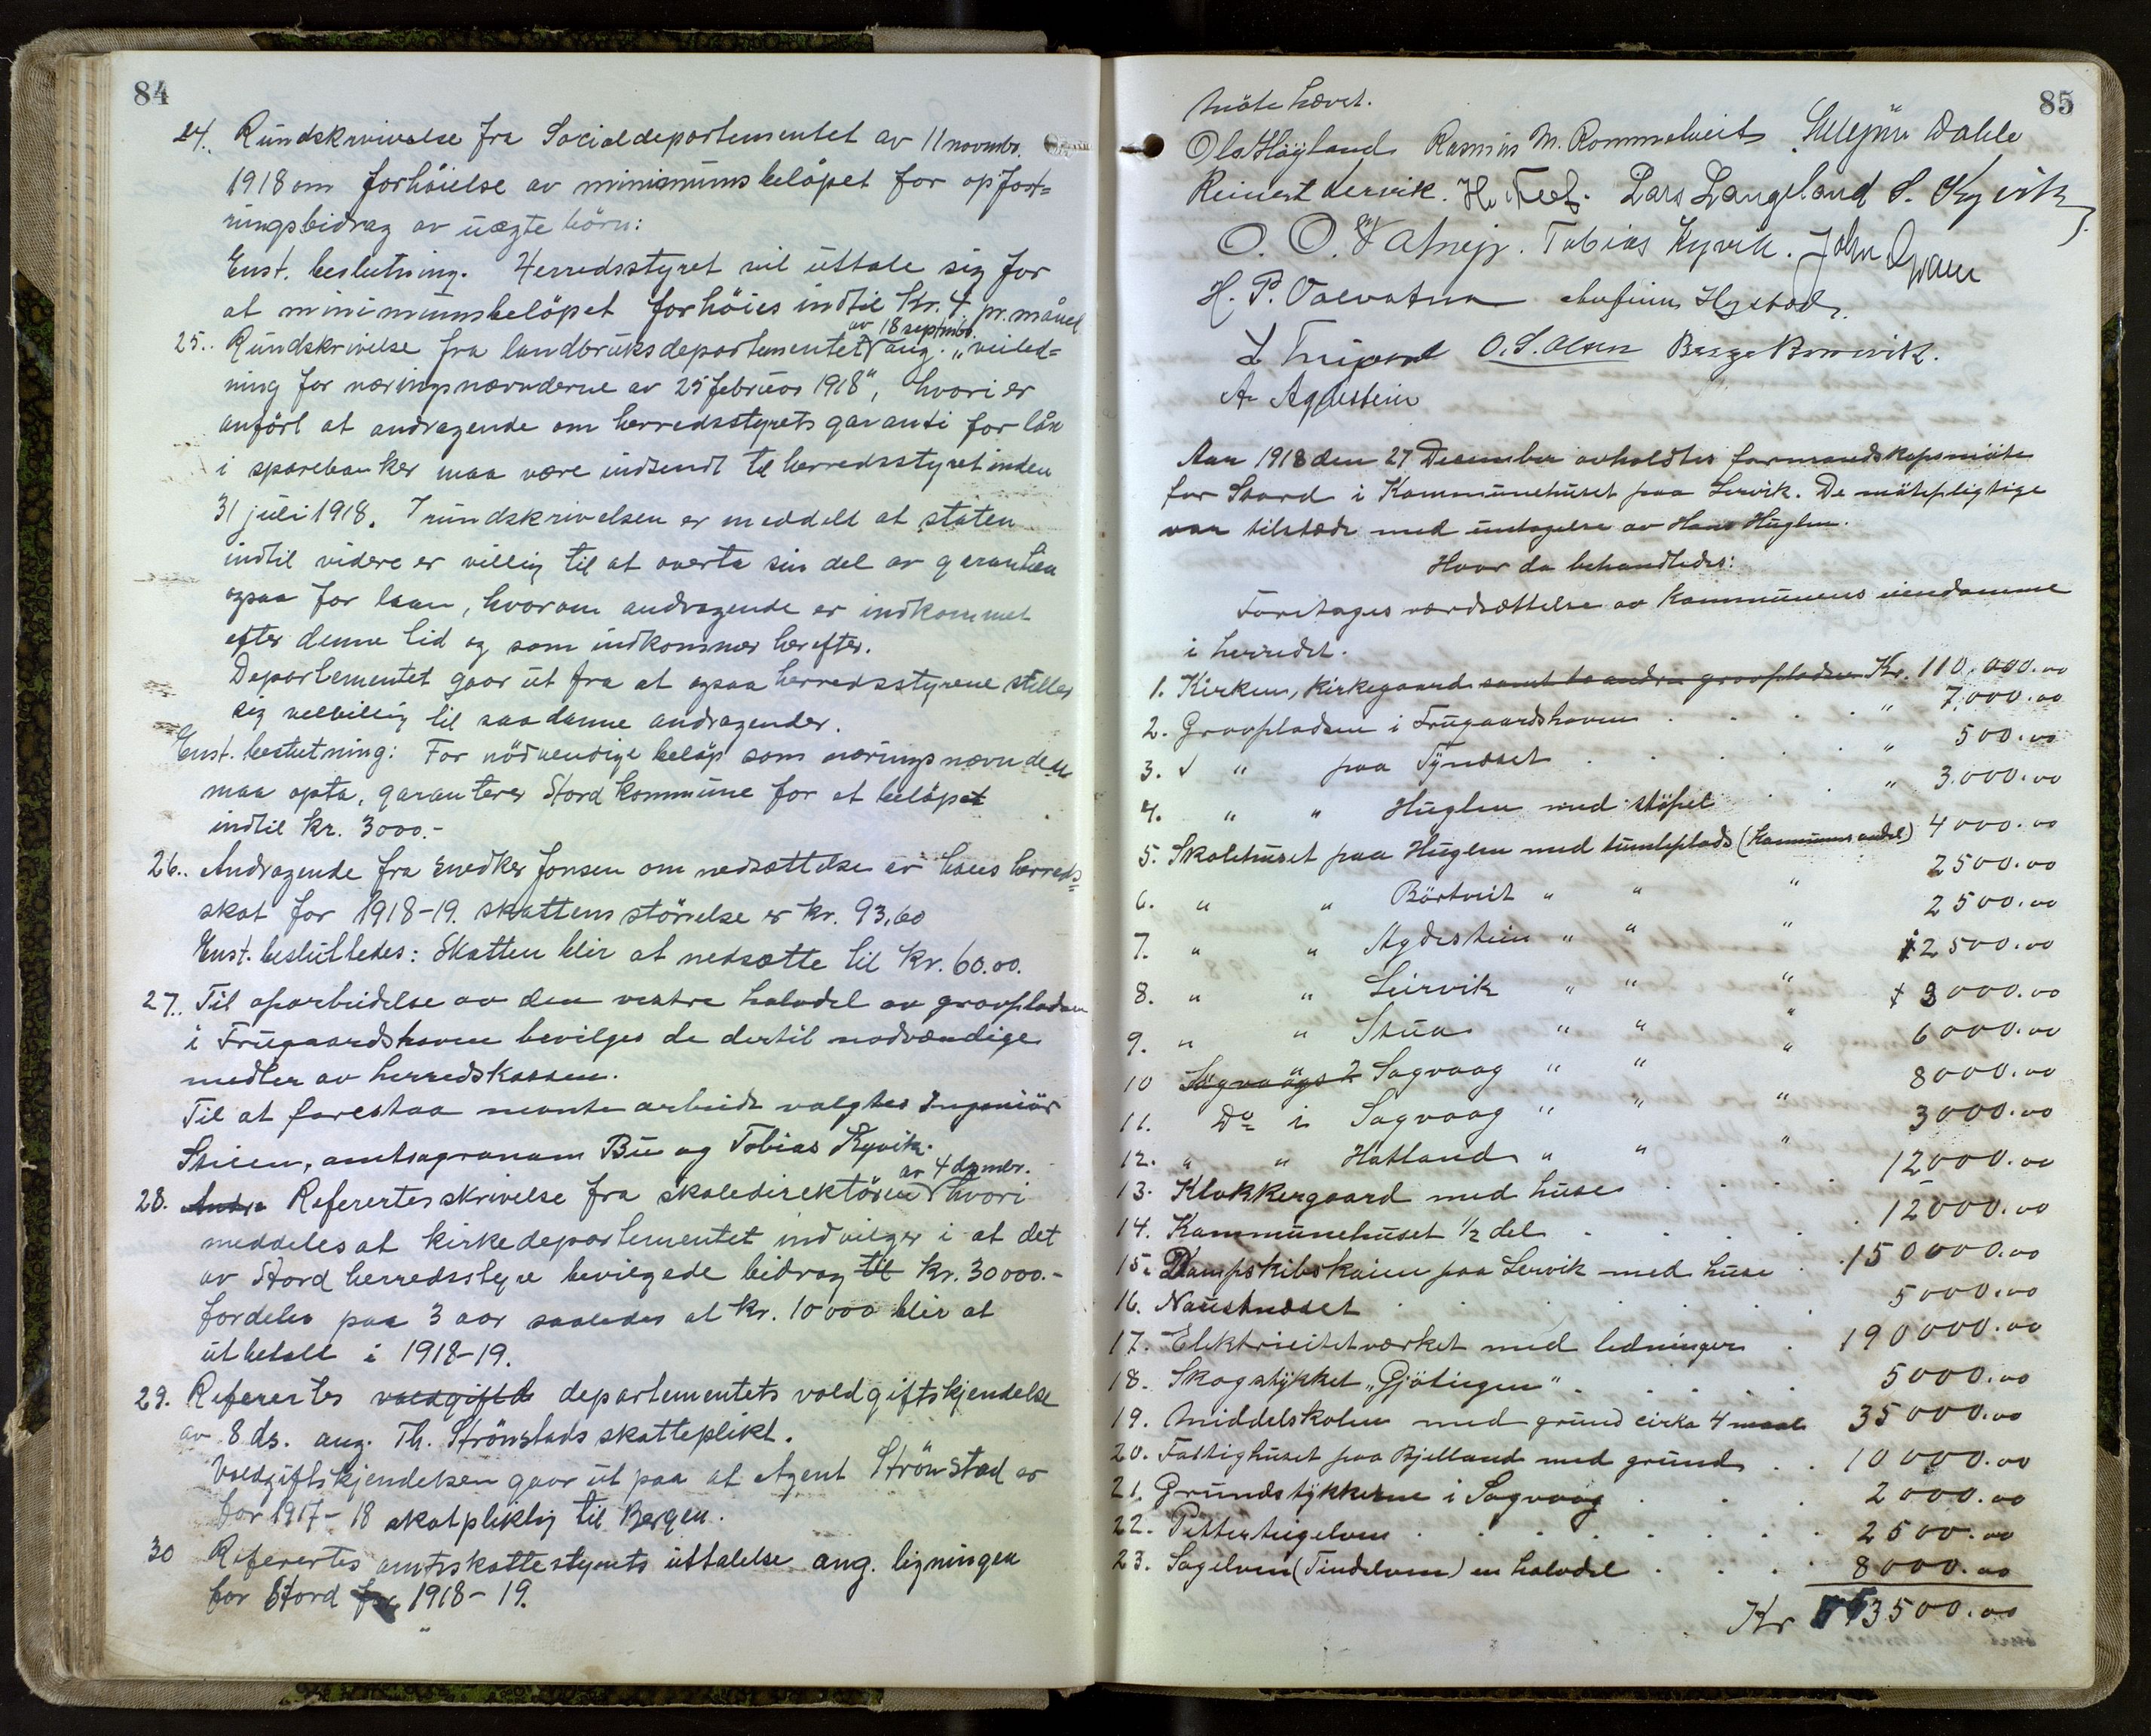 84
24. Rundskrivelse fra Socialdepartementet av 11 novmbr.
1918 om forhöielse av minimumsbelöpet for opfost=
ringsbidrag av uægte börn:
Enst. beslutning. Herredsstyret vil uttale sig for
at minimumsbelöpet forhöies indtil Kr. 4. pr. måned
av 18 septmbr.
25. Rundskrivelse fra landbruksdepartementet ang. "veiled=
ning for næringsnævnderne av 25 februar 1918", hvori er
anfört at andragende om herredsstyrets garanti for lån
i sparebanker maa være indsendt til herredsstyret inden
31 juli 1918. I rundskrivelsen er meddelt at staten
indtil videre er villig til at overta sin del av garantien
ogsaa for laan, hvorom andragende er indkommet
efter denne tid og som indkommer herefter.
Departementet gaar ut fra at ogsaa herredsstyrene stiller
sig velvillig til saadanne andragender.
Enst. beslutning: For nödvendige beløp som næringsnævnden
maa opta, garanterer Stord kommune for et belöpet
indtil kr. 3000.-
26. Andragende fra snedker Jonsen om nedsættelse av hans herreds=
skat for 1918-19. skattens störrelse er kr. 93,60
Enst. besluttedes: Skatten blir at nedsætte til kr. 60.00.
27. Til oparbeidelse av den vestre halvdel av gravpladsen
i Frugaardshaven bevilges de dertil nødvændige
midler av herredskassen.
Til at forestaa nevnte arbeide valgtes Ingeniör
Steien, amtsagronom Bu og Tobias Kyvik.
av 4 dzmbr.
28. Andra Refererteskrivelse fra skoledirektören hvori
meddeles at kirkedepartementet indvilger i at det
av Stord herredsstyre bevilgede bidrag til kr. 30000.-
fordeles paa 3 aar saaledes at kr. 10000 blir at
utbetale i 1918-19.
29. Refertes voldgiftd departementets voldgiftskjendelse
av 8 ds. ang. Th. Strönstads skatteplikt.
Voldgiftskjendelsen gaar ut paa at Agent Strönstad er
for 1917-18 skatpliktig til Bergen.
30 Refererts amtsskattestyrets uttalelse ang. ligningen
for Stord for 1918-19.
85
Möte hævet.
Ola Höyland Rasmus M. Rommetveit Dahle
Reinert Lervik. H. Lars Langeland S. Kyvik
O. O. Tobias Kyvik. John
H. P. Valvatna Hystad.
O. S. Olsen Børge
A. Agdestein
Aar 1918 den 27 December avholdtes formandskapsmöte
for Stord i Kommunehuset paa Lervik. De mötepligtige
var tilstæde med undtagelse av Hans Huglen.
Hvor da behandledes:
Foretages værdsættelse av Kommunens eiendomme
i herredet.
1. Kirken, kirkegaard samt to andre gravpladser Kr. 110,000.00
2. Gravpladsen i Frugaardshaven . . . " 7,000.00
3. " paa Tyndset . . . " 500.00
4. " " Huglen med stöpel . . " 3.000.00
5. Skolehuset paa Huglen med tumleplads (Kommunens andel) 4000.00
6. " " Börtveit " " " 2500.00
7. " " Agdestein " " " 2500.00
8. " " Leirvik " " " 12500.00
9. " " Stua " " " 3000.00
10 Sagvaags 2 Sagvaag " " " 6000.00
11. Do i Sagvaag " " " 8000.00
12. " " Hatland " " " 3000.00
13. Klokkergaard med huse . . . 12000.00
14. Kommunehuset 1/2 del . . . 12000.00
15. Dampskibskaien paa Lervik med huse . 150000.00
16. Naustnæset . . . 5000.00
17. Elektricitetværket med ledninger . 190000.00
18. Skogstykket "Gjöteigen" . . . 5000.00
19. Middelskolen med grund cirka 4 maal 35000.00
20. Fattighuset paa Bjelland med grund . . 10000.00
21. Grundstykkerne i Sagvaag . . . 2000.00
22. Petterteigelven . . . 2500.00
23. Sagelven (Tindelven) en halvdel . . . 8000.00
Kr 573500.00